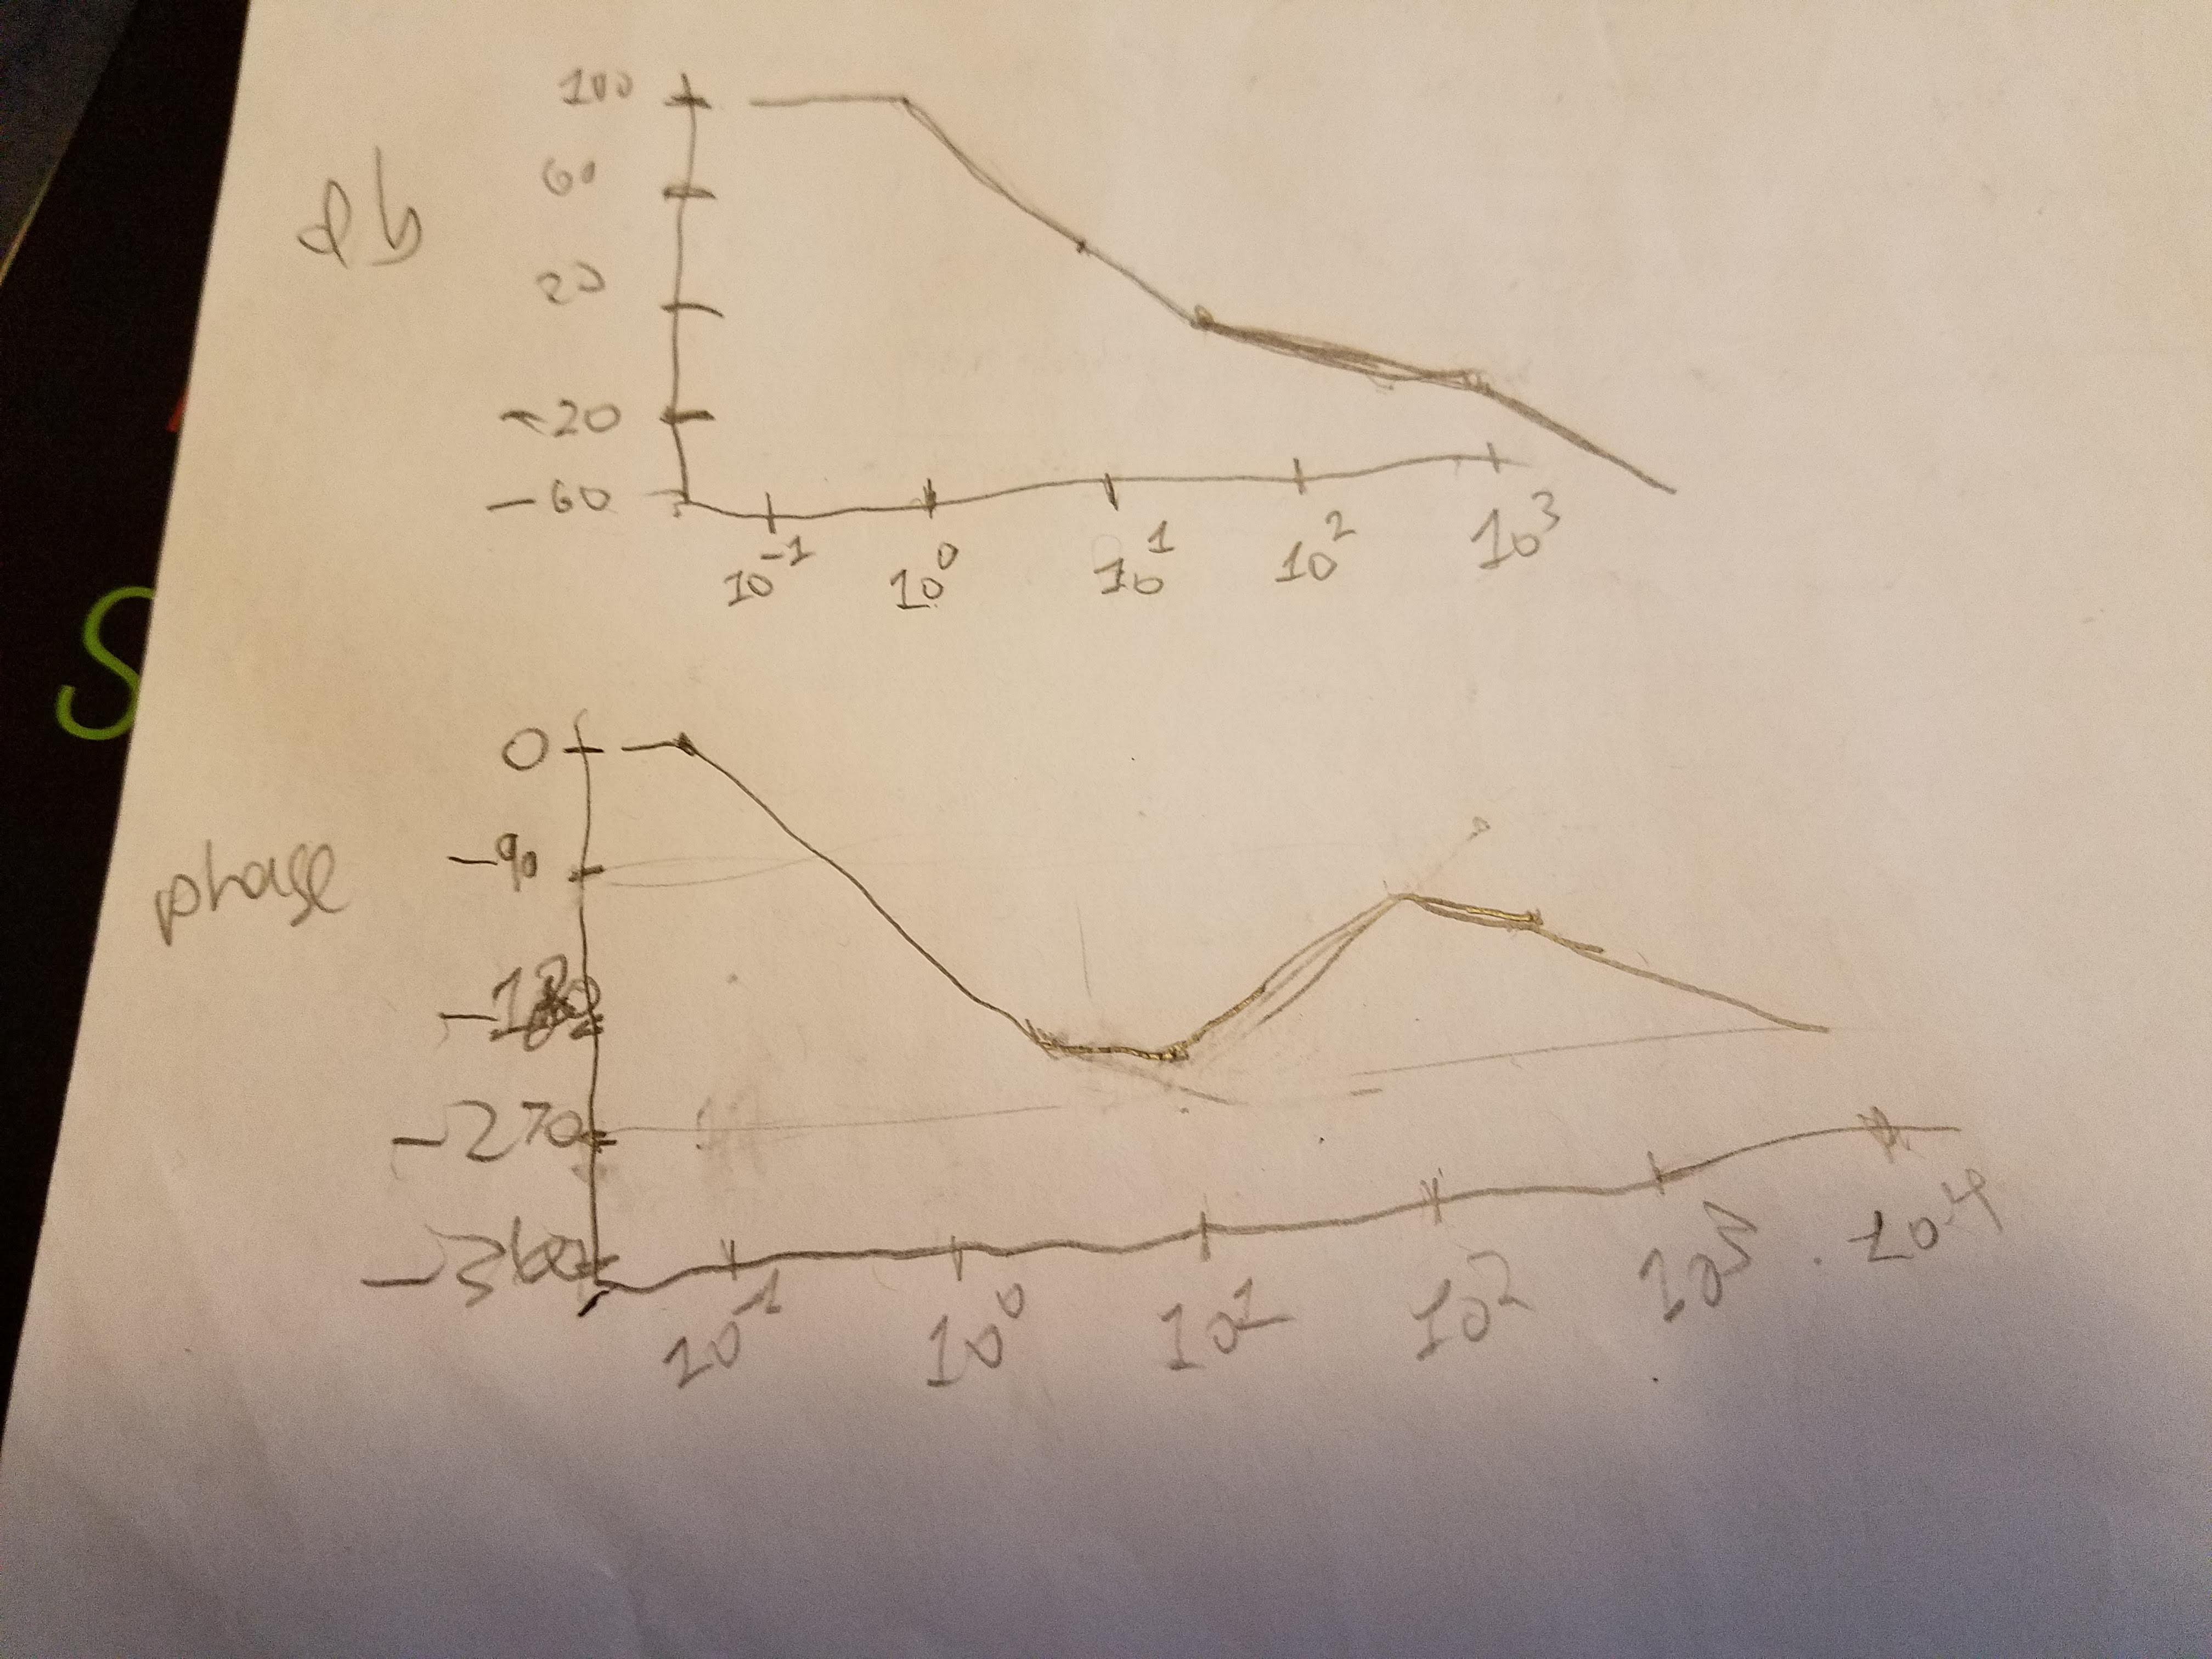 db
100
60
20
-20
-60
10^-1 10^0 10^1 10^2 10^3
phase
0
-90
-180
-270
-360
10^-1 10^0 10^1 10^2 10^3 10^4
S